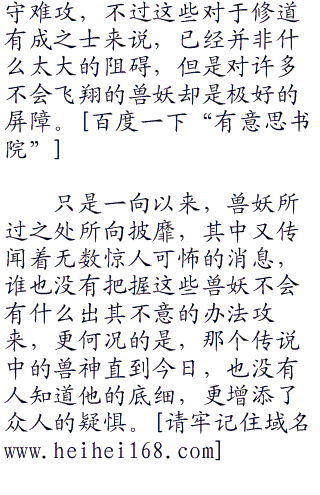 守难攻，不过这些对于修道
有成之士来说，已经并非什
么太大的阻碍，但是对许多
不会飞翔的兽妖却是极好的
屏障。[百度一下“有意思书
院”]
只是一向以来，兽妖所
过之处所向披靡，其中又传
闻着无数惊人可怖的消息，
谁也没有把握这些兽妖不会
有什么出其不意的办法攻
来，更何况的是，那个传说
中的兽神直到今日，也没有
人知道他的底细，更增添了
众人的疑惧。[请牢记住域名
www.heihei168.com]